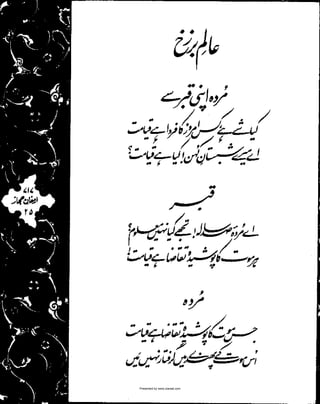 عالمِ برزخ
مُردہ اپنی قبر سے
کیا شے ہے، کس امروز کا فردا ہے قیامت
اے میرے شبستانِ کُہن! کیا ہے قیامت؟
قبر
اے مُردۂ صد سالہ! تجھے کیا نہیں معلوم؟
ہر موت کا پوشیدہ تقاضا ہے قیامت!
مُردہ
جس موت کا پوشیدہ تقاضا ہے قیامت
اُس موت کے پھندے میں گرفتار نہیں مَیں
۷۱۷
ارمغانِ حجاز
۲۵
Presented by www.ziaraat.com